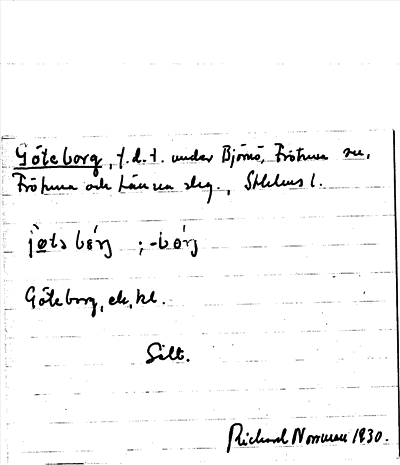 Göteborg, f.d.t. under Björnö, Frötuna sn,
Frötuna och Länna slg., Sthlms l.
Göteborg, ek, kl.
Sält.
Richard Norrman 1930.